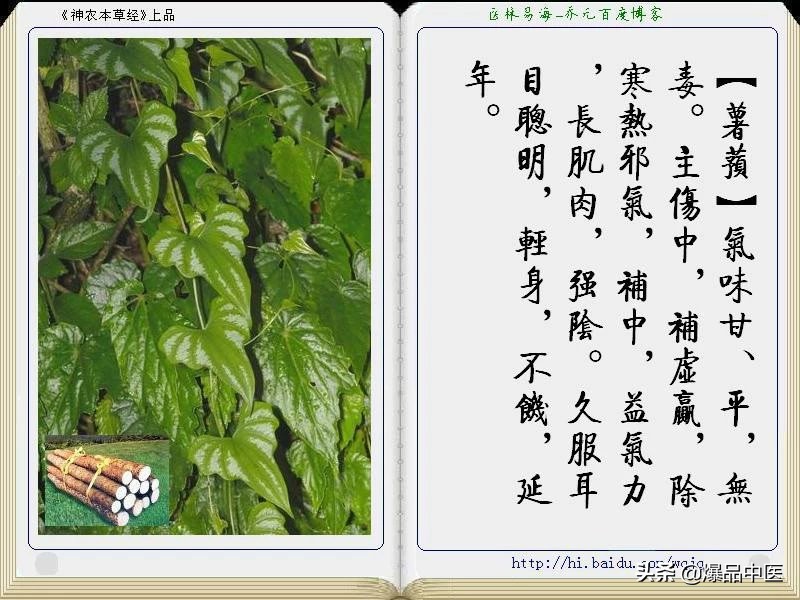 《神农本草经》上品
医林易海_乔元百度博客
【薯蘋】氣味甘、平,無
毒。主傷中,補虛羸,除
寒熱邪氣,補中,益氣力
,長肌肉,强陰。久服耳
目聰明,輕身,不饑,延
年。
http://hi.baidu.com/
头条 @爆品中医